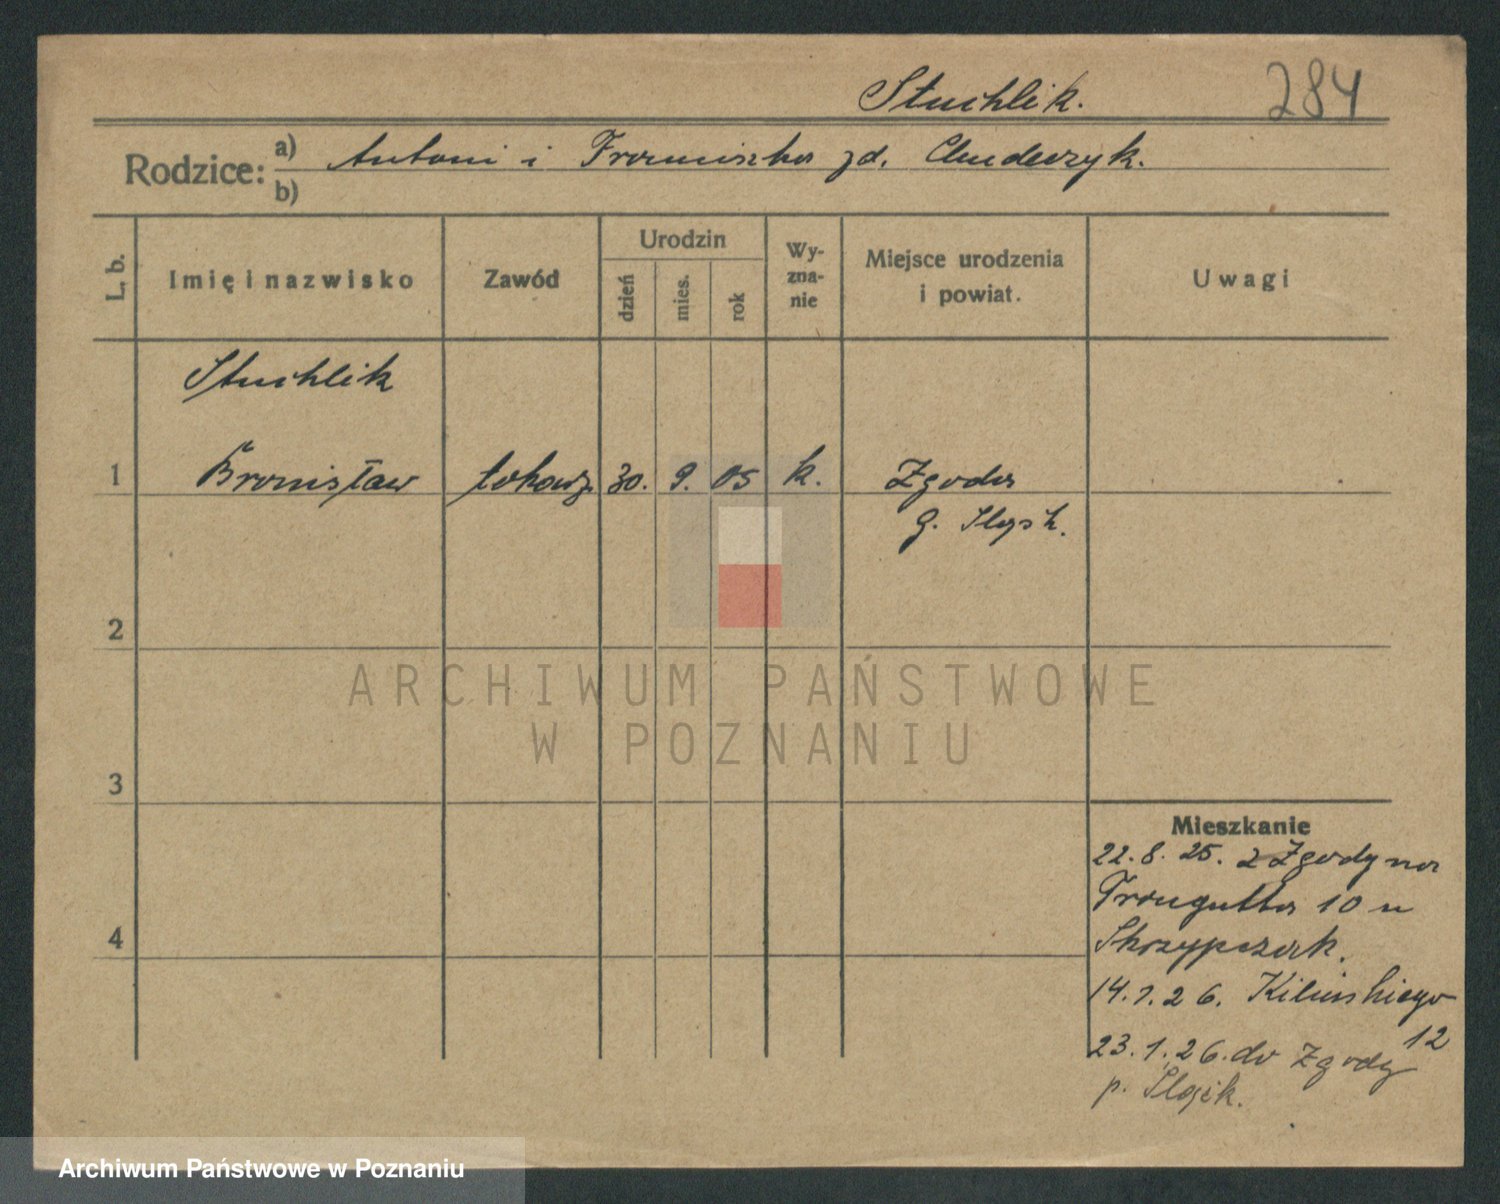 Stuchlik.
284
Rodzice:
a) Antoni i Franciszka zd.
b)
L. b.
Imię i nazwisko
Zawód
Urodzin
dzień
mies.
rok
Wy-
zna-
nie
Miejsce urodzenia
i powiat.
Uwagi
Stuchlik
1 Bronisław tokarz 30. 9. 05 k. Zgoda
G. Śląsk.
2
3
4
Mieszkanie
22.8.25. z Zgody na
Traugutta 10 u
Skrzypczak.
14.1.26. Kilińskiego
12
23.1.26. do Zgody
p. Śląsk.
ARCHIWUM PAŃSTWOWE
W POZNANIU
Archiwum Państwowe w Poznaniu